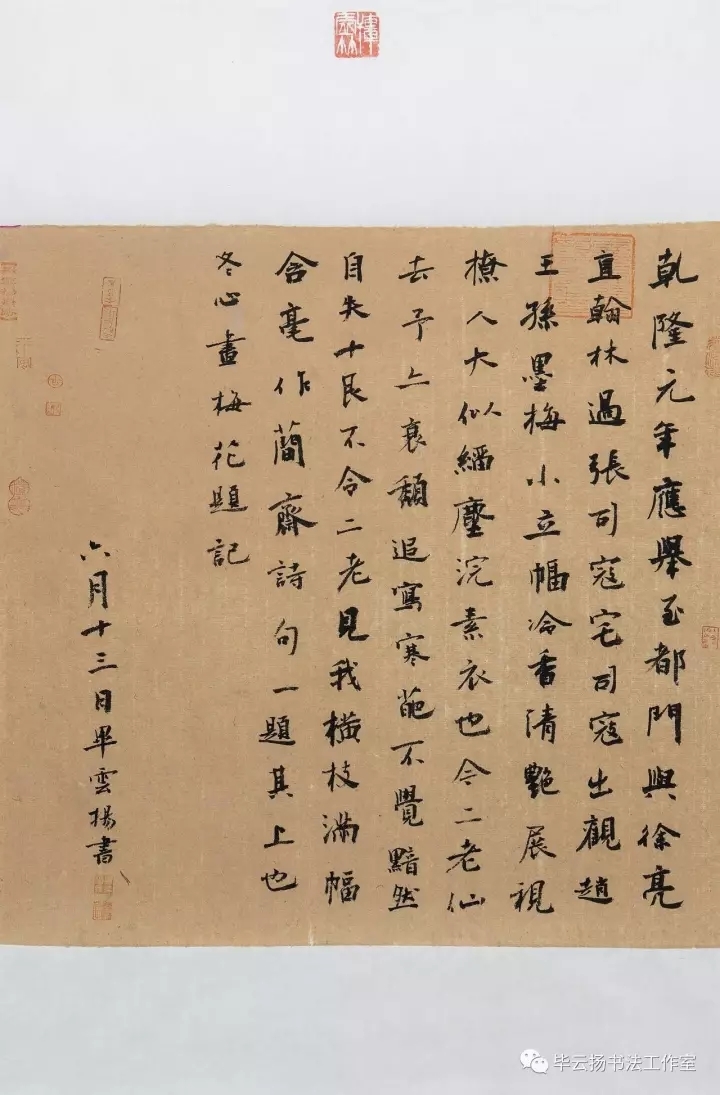 乾隆元年應舉至都門與徐亮
直翰林過張司寇宅司寇出觀趙
王孫墨梅小立幅冷香清艷展視
撩人大似緇塵浣素衣也今二老仙
去予亦衰頹追寫寒葩不覺黯然
自失十
不令二老見我橫枝滿幅
含毫作簡齋詩句一題其上也
冬心畫梅花題記
六月十三日畢雲揚書
毕云扬书法工作室